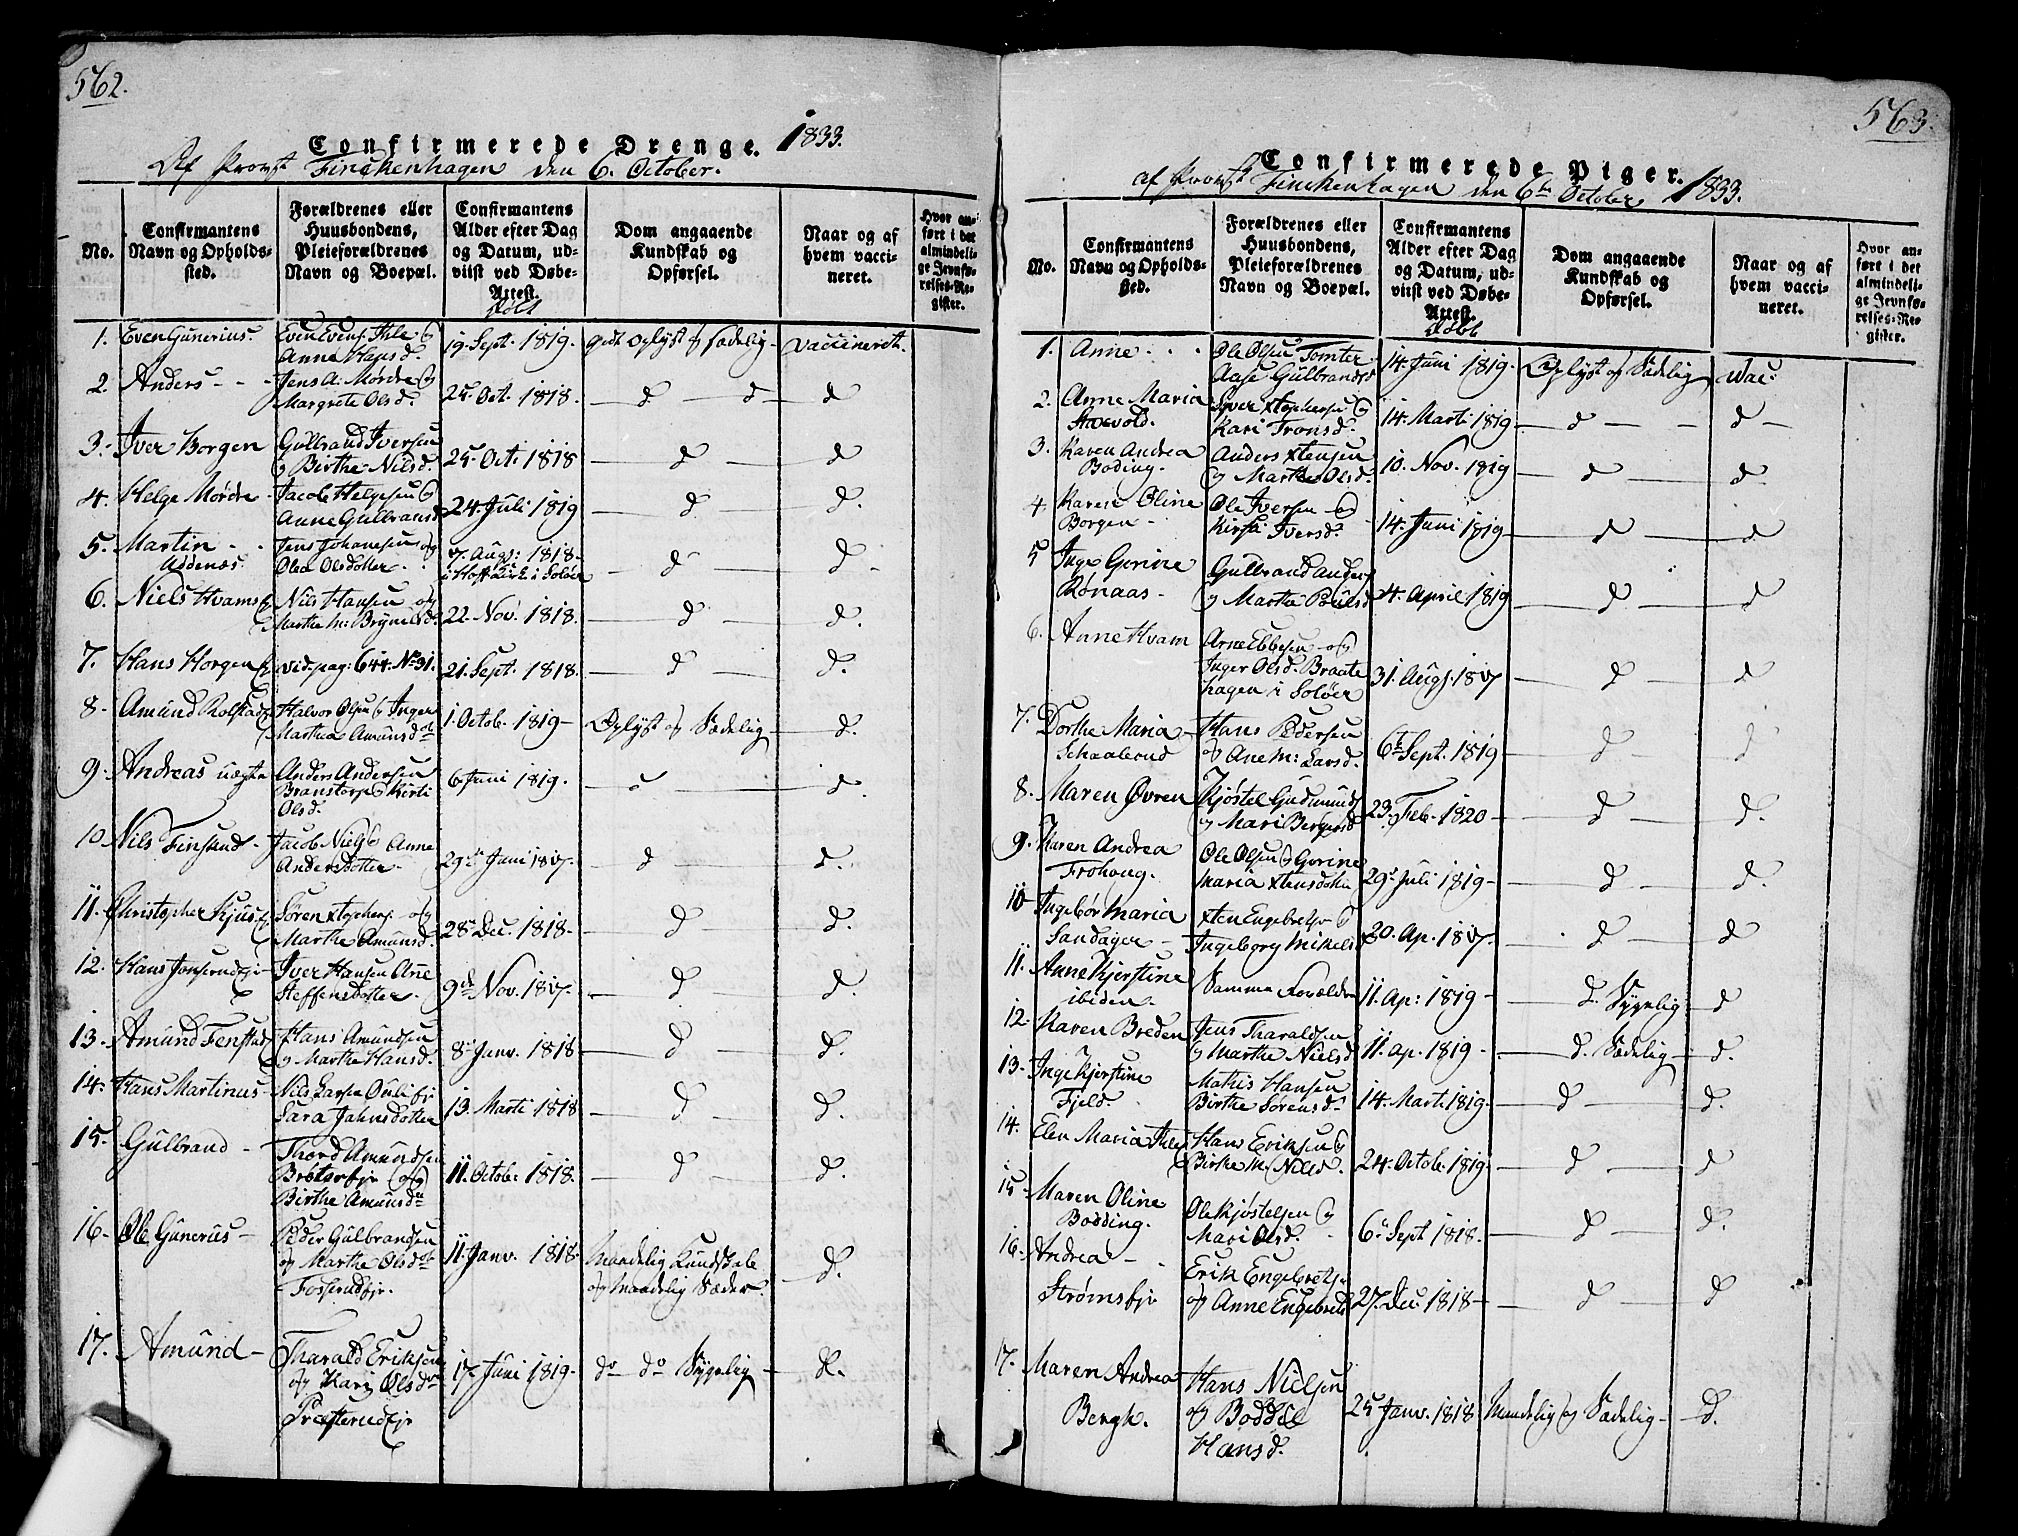 562.
Confirmerede Drenge. 1833.
Af Provst Finckenhagen den 6. October.
No.
Confirmantens
Navn og Opholds-
sted.
Forældrenes eller
Huusbondens,
Pleieforældrenes
Navn og Boepæl.
Confirmantens
Alder efter Dag
og Datum, ud-
viist ved Døbe-
Attest.
Døbt
Dom angaaende
Kundskab og
Opførsel.
Naar og af
hvem vacci-
neret.
Hvor an-
ført i det
almindeli-
ge Jevnfø-
relses-Re-
gister.
1. Even Gunerius. Even Evens. Ihle og
Anne Hansd. 19. Sept. 1819. godt Oplyst og Sædelig vaccineret.
2. Anders Jens A: Mørdre og
Margrete Olsd. 25. Oct. 1818. d d d
3. Iver Borgen Gulbrand Iversen
og Birthe Nilsd. 25. Oct. 1818 d d
4. Helge Mørdre Jacob Helgesen og
Anne Gulbransd 24. Juli 1819 d d.
5. Martin
Uddenæs. Jens Johannesen og
Olea Olsdatter 7. Augs: 1818.
i Hoff Kirk i Soløer d d.
6. Niels Hvams Nils Hansen og
Marthe M: Brynilsd. 22. Nov. 1818. d d.
7. Hans Horgen vid. pag: 644. No 31. 21. Sept. 1818. d d.
8. Amund Rolstad Halvor Olsen og Inger
Marthea Amunsd 1. Octob. 1819 Oplyst og Sædelig d.
9. Andreas uægte Anders Andersen
Branstorp og Kirsti
Olsd. 6 Juni 1819. d.
10. Nils Finstad Jacob Niels Anne
Andersdatter 29de Juni 1817. d d.
11. Christopher Kjus Søren Xtophers. og
Marthe Amunsd. 28de Dec. 1818 d d.
12. Hans Jonsrudeje Iver Hansen Ane
Steffensdatter 9de Nov. 1817. d d.
13. Amund Fenstad Hans Amundsen
og Marthe Hansd. 8. Janv. 1818 d d.
14. Hans Martinus Nils Larsen
Sara Jahnsdatter 13. Marti 1818 d d.
15. Gulbrand Thord Amundsen
Brøterejr og
Birthe Amunsd 11. October 1818. d d.
16. Ole Gunerius Peder Gulbransen
og Marthe Olsd
Fosserudejr. 11. Janv. 1818. Maadelig Kundskab
og maadelig Sæder d.
17. Amund Tharald Eriksen
og Kari Olsd
Præsterudejr 17 Juni 1819. do do Sygelig d.
563.
Confirmerede Piger. 1833.
af Provst Finckenhagen den 6te October
No.
Confirmantens
Navn og Opholds-
sted.
Forældrenes eller
Huusbondens,
Pleieforældrenes
Navn og Boepæl.
Confirmantens
Alder efter Dag
og Datum, ud-
viist ved Døbe-
Attest.
Døbt
Dom angaaende
Kundskab og
Opførsel.
Naar og af
hvem vacci-
neret.
Hvor an-
ført i det
almindeli-
ge Jevnfø-
relses-Re-
gister.
1. Anne Ole Olsen Tomter
Aase Gulbrandsd 14. Juni 1819. Oplyst og Sædelig vac:
2. Anne Maria
Syver Xtophersen og
Kari Tronsd. 14. Marti 1819. d d
3. Karen Andrea
Boding. Anders Xtensen
og Marthe Olsd. 10. Nov. 1819 d d.
4. Karen Oline
Borgen Ole Iversen og
Kirsti Iversd. 14. Juni 1819 d d
5 Inge Gorine
Rønaas Gulbrand Anders
og Marthe Poulsd 4. April 1819 d d
6. Anne Hvam Arne Ebbesen og
Inger Olsd. Braate
hagen i Soløer 31. Augs. 1817 d d
7. Dorthe Maria
Schaalerud Hans Pedersen
og Ane M: Larsd. 6te Sept. 1819 d d
8. Maren Øvren Kjøstel Gudmunds
og Mari Bergersd 23. Feb. 1820 d d.
9. Karen Andrea
Frohoug. Ole Olsen og Gorine
Maria Xtensdatter 29de Juli 1819 d d.
10 Ingebor Maria
Sandager Xten Engebretsen og
Ingeborg Mikels 20. Ap. 1817. d d
11. Anne Kjerstine
ibidem. Samme Forældre 11. Ap: 1819 d. Sygelig d
12. Karen Breden Jens Tharaldsen
og Marthe Nielsd 11. Ap. 1819 d. Sædelig d.
13. Inge Kjerstine
Fjeld. Mathis Hansen
Birthe Sørensd 14. Marti 1819. d d.
14. Elen Maria Ihle Hans Eriksen og
Birthe M: Nilsd. 24. Octob. 1819. d d
15. Maren Oline
Bodding. Ole Kjøstelsen og
Mari Olsd. 6. Sept 1818. d d.
16. Andrea
Strømsejr Erik Engebretsen
og Anne Engebretsd 27. Dec. 1818 d d
17. Maren Andrea
Bergh. Hans Nielsen
og Boddil
Hansd. 25 Janv. 1818 Maadelig og Sædelig d.